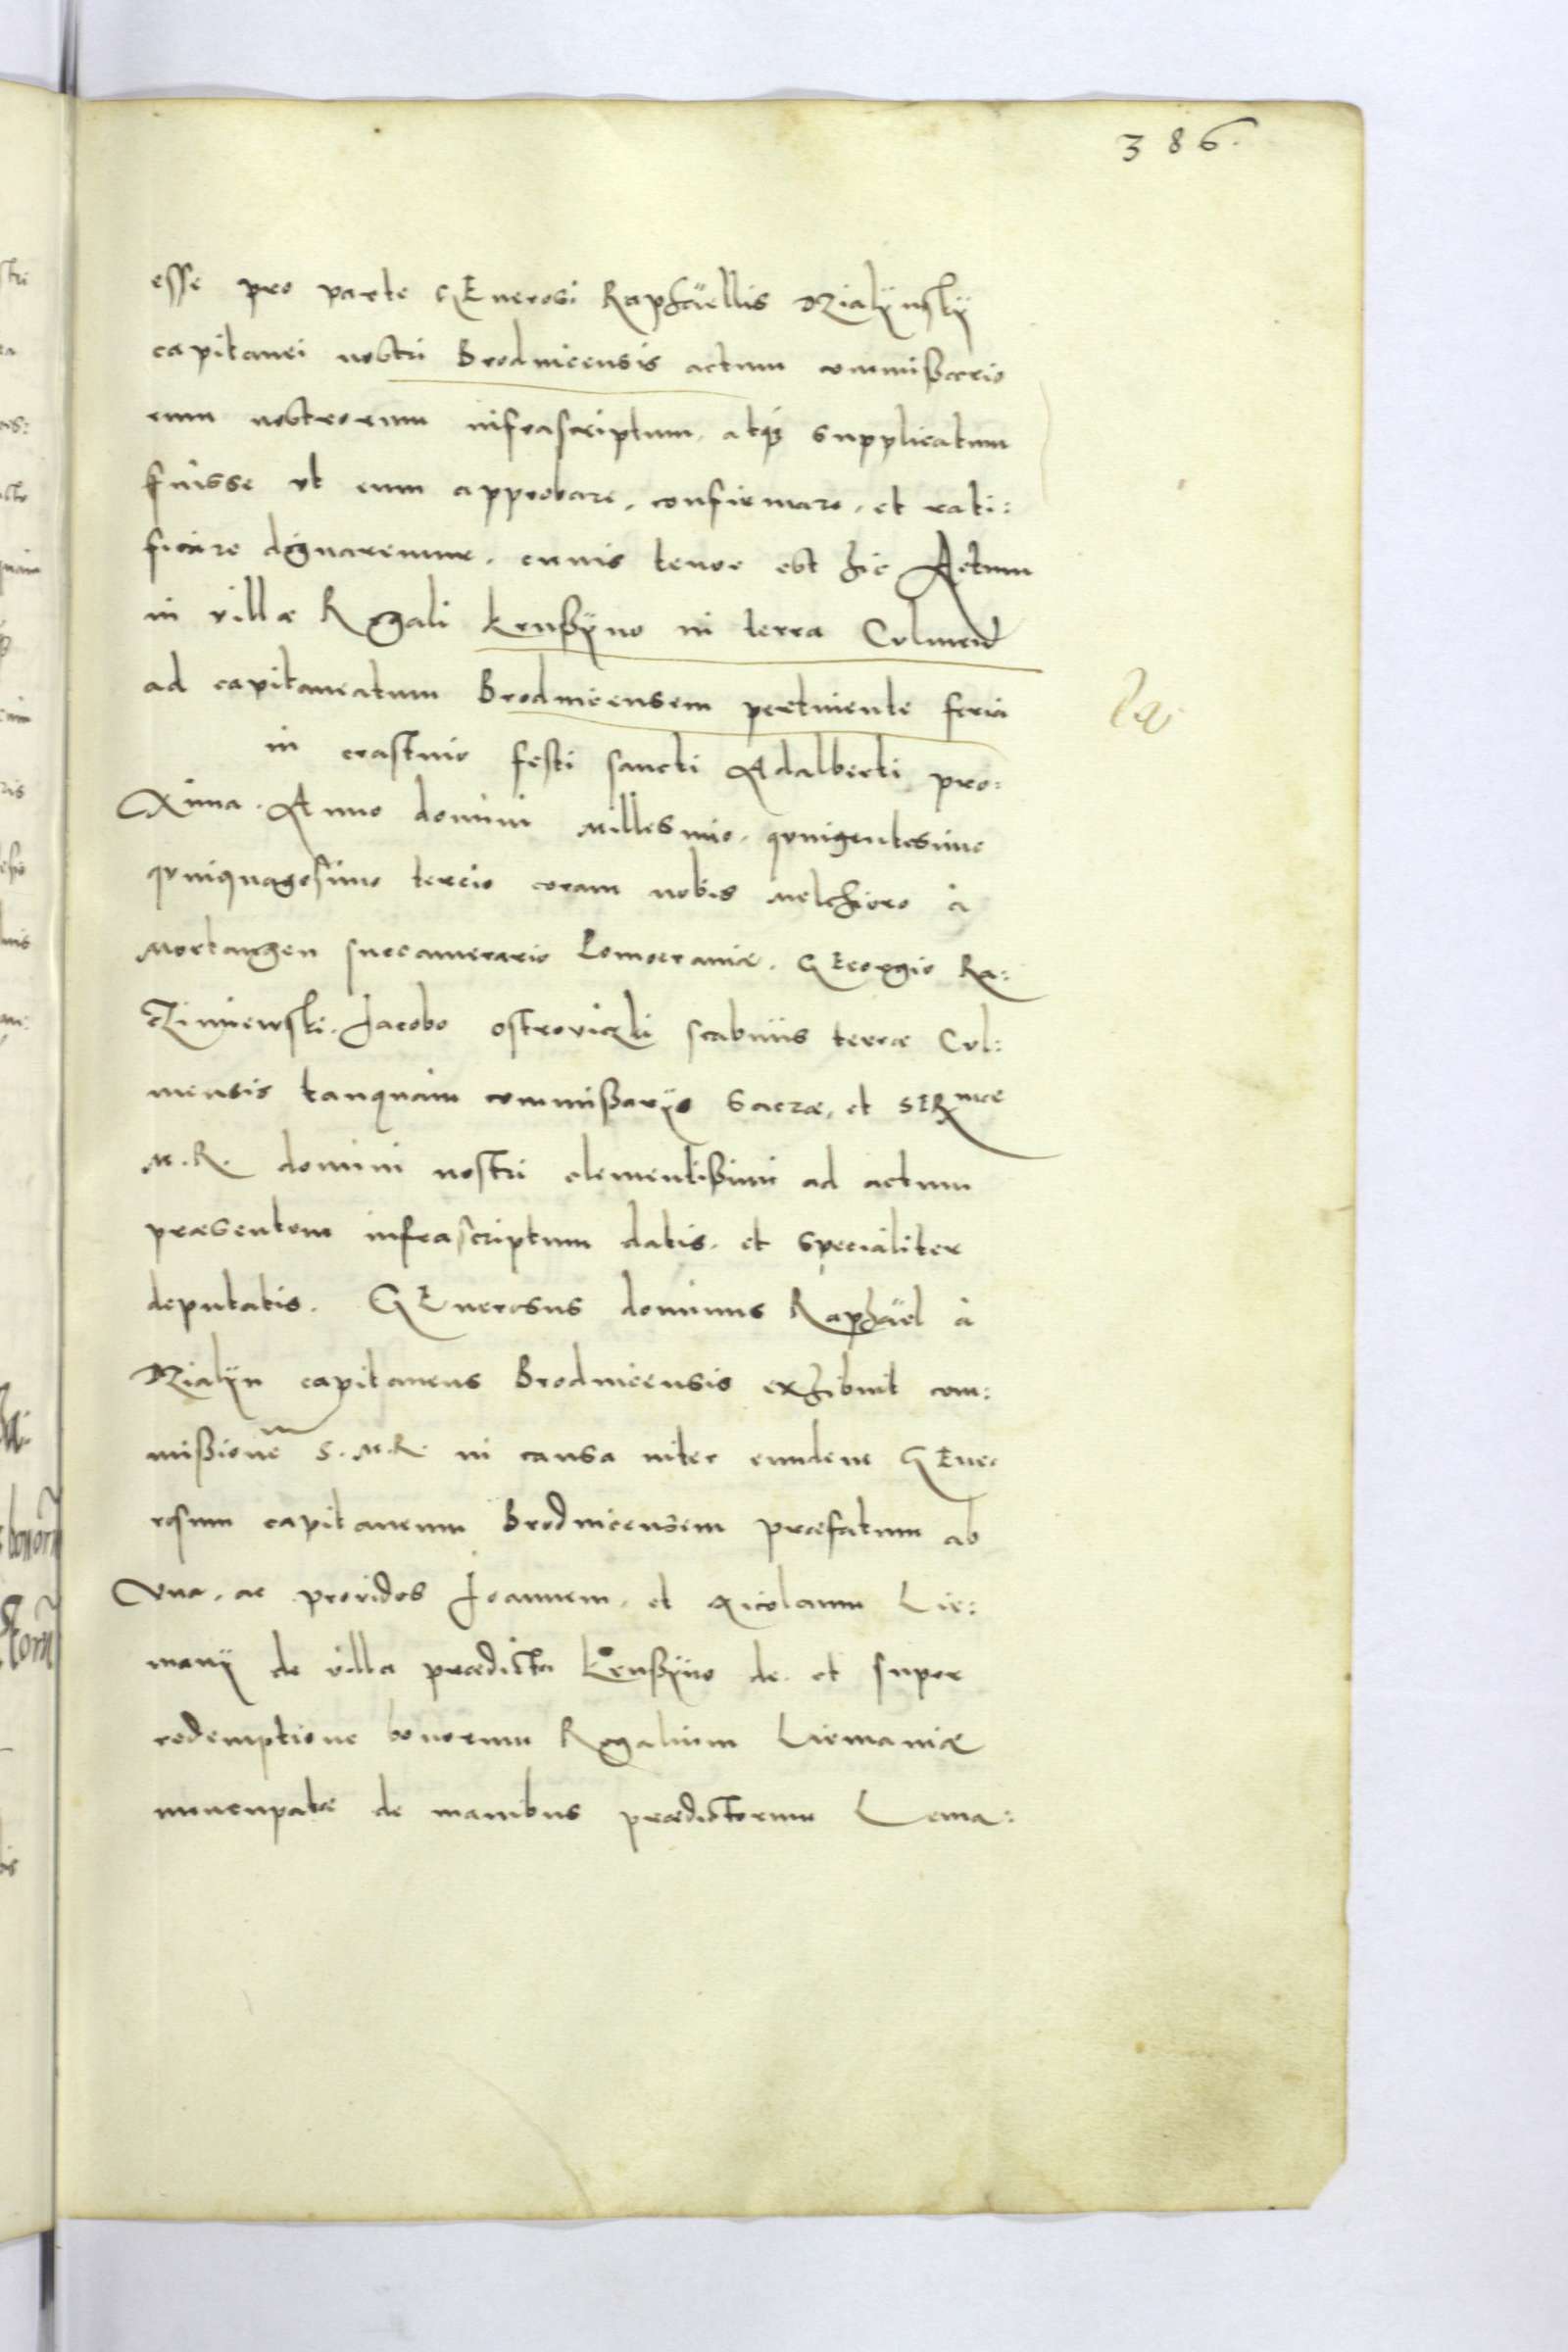 386.
esse pro parte GEnerosi Raphäellis Dzialÿnskÿ
capitanei nostri Brodnicensis actum commißario
rum nostrorum infrascriptum, atq3 supplicatum
fuisse vt eum approbare, confirmare, et rati:
ficare dignaremur, cuius tenor est hic Actum
in villa Regali Krußÿno in terra Culmeñ
ad capitaneatum Brodnicensem pertinente feria
in crastino festi sancti Adalberti pro:
xima. Anno domini Millesimo, quingentesimo
quinquagesimo tercio coram nobis Melchiore à
Mortangen succamerario Pomoeraniæ. GEorgio Ra:
Ziniewski. Jacobo ostroviczki scabinis terræ Cul:
mensis tanquam commißarijs Sacræ, et SERmæ
M.R. domini nostri clementißimi ad actum
præsentem infrascriptum datis, et specialiter
deputatis. GEnerosus dominus Raphäel à
Dzialÿn capitaneus Brodnicensis exhibuit com:
mißionem S.M.R. in causa inter eundem GEne
rosum capitaneum Brodnicensem præfatum ab
vna, ac providos Joannem, et Nicolaum Lie:
manÿ de villa prædicta Krußÿno de et super
redemptione bonorum Regalium Liemaniæ
nuncupatæ de manibus prædictorum Lema: